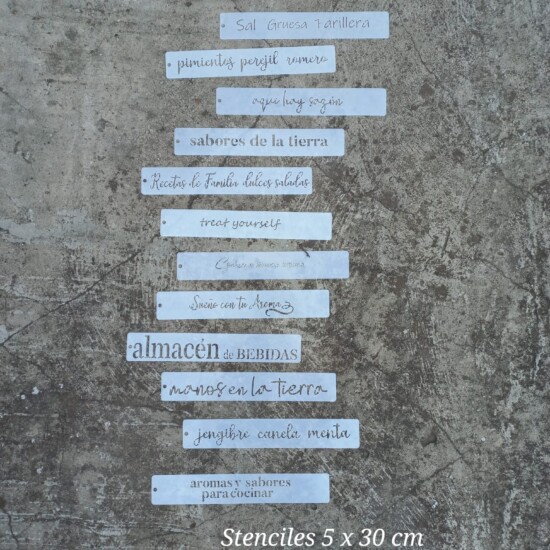 Sal Gruesa Parillera
pimientos perejil romero
aqui hay sazón
sabores de la tierra
Recetas de Familia dulces saladas
treat yourself
Sueño con tu Aroma
almacén de BEBIDAS
manos en la tierra
jengibre canela menta
aromas y sabores
para cocinar
Stenciles 5 x 30 cm